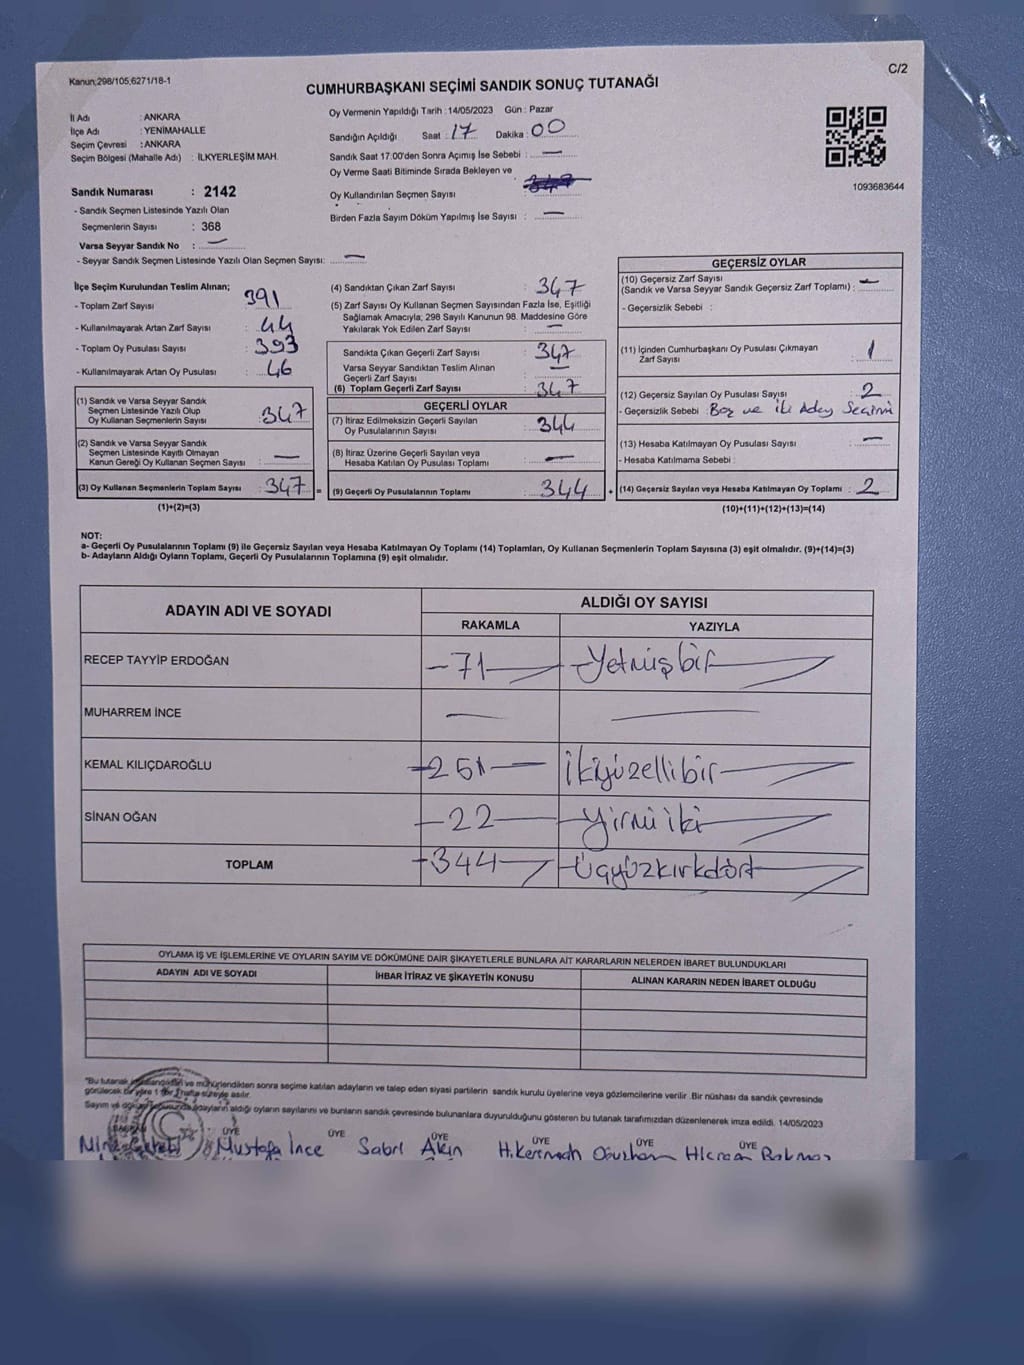 Kanun;298/105,6271/18-1
C/2
CUMHURBAŞKANI SEÇİMİ SANDIK SONUÇ TUTANAĞI
İl Adı : ANKARA
İlçe Adı : YENİMAHALLE
Seçim Çevresi : ANKARA
Seçim Bölgesi (Mahalle Adı) : İLKYERLEŞİM MAH.
Oy Vermenin Yapıldığı Tarih : 14/05/2023 Gün : Pazar
Sandığın Açıldığı Saat : 17 Dakika : 00
Sandık Saat 17.00'den Sonra Açımış İse Sebebi : —
Oy Verme Saati Bitiminde Sırada Bekleyen ve
Oy Kullandırılan Seçmen Sayısı
Birden Fazla Sayım Döküm Yapılmış İse Sayısı : —
1093683644
Sandık Numarası : 2142
- Sandık Seçmen Listesinde Yazılı Olan
Seçmenlerin Sayısı : 368
Varsa Seyyar Sandık No : —
- Seyyar Sandık Seçmen Listesinde Yazılı Olan Seçmen Sayısı: —
İlçe Seçim Kurulundan Teslim Alınan;
- Toplam Zarf Sayısı : 391
- Kullanılmayarak Artan Zarf Sayısı : 44
- Toplam Oy Pusulası Sayısı : 393
- Kullanılmayarak Artan Oy Pusulası : 46
(1) Sandık ve Varsa Seyyar Sandık
Seçmen Listesinde Yazılı Olup
Oy Kullanan Seçmenlerin Sayısı : 347
(2) Sandık ve Varsa Seyyar Sandık
Seçmen Listesinde Kayıtlı Olmayan
Kanun Gereği Oy Kullanan Seçmen Sayısı : —
(3) Oy Kullanan Seçmenlerin Toplam Sayısı : 347
(1)+(2)=(3)
(4) Sandıktan Çıkan Zarf Sayısı : 347
(5) Zarf Sayısı Oy Kullanan Seçmen Sayısından Fazla İse, Eşitliği
Sağlamak Amacıyla; 298 Sayılı Kanunun 98. Maddesine Göre
Yakılarak Yok Edilen Zarf Sayısı : —
Sandıkta Çıkan Geçerli Zarf Sayısı : 347
Varsa Seyyar Sandıktan Teslim Alınan
Geçerli Zarf Sayısı : —
(6) Toplam Geçerli Zarf Sayısı : 347
GEÇERLİ OYLAR
(7) İtiraz Edilmeksizin Geçerli Sayılan
Oy Pusulalarının Sayısı : 344
(8) İtiraz Üzerine Geçerli Sayılan veya
Hesaba Katılan Oy Pusulası Toplamı : —
= (9) Geçerli Oy Pusulalarının Toplamı : 344
GEÇERSİZ OYLAR
(10) Geçersiz Zarf Sayısı
(Sandık ve Varsa Seyyar Sandık Geçersiz Zarf Toplamı) : —
- Geçersizlik Sebebi :
(11) İçinden Cumhurbaşkanı Oy Pusulası Çıkmayan
Zarf Sayısı : 1
(12) Geçersiz Sayılan Oy Pusulası Sayısı : 2
- Geçersizlik Sebebi : Boş ve iki Aday Seçimi
(13) Hesaba Katılmayan Oy Pusulası Sayısı : —
- Hesaba Katılmama Sebebi :
+ (14) Geçersiz Sayılan veya Hesaba Katılmayan Oy Toplamı : 2
(10)+(11)+(12)+(13)=(14)
NOT:
a- Geçerli Oy Pusulalarının Toplamı (9) ile Geçersiz Sayılan veya Hesaba Katılmayan Oy Toplamı (14) Toplamları, Oy Kullanan Seçmenlerin Toplam Sayısına (3) eşit olmalıdır. (9)+(14)=(3)
b- Adayların Aldığı Oyların Toplamı, Geçerli Oy Pusulalarının Toplamına (9) eşit olmalıdır.
ADAYIN ADI VE SOYADI ALDIĞI OY SAYISI
RAKAMLA YAZIYLA
RECEP TAYYİP ERDOĞAN 71 Yetmişbir
MUHARREM İNCE — —
KEMAL KILIÇDAROĞLU 251 İkiyüzellibir
SİNAN OĞAN 22 Yirmiiki
TOPLAM 344 Üçyüzkırkdört
OYLAMA İŞ VE İŞLEMLERİNE VE OYLARIN SAYIM VE DÖKÜMÜNE DAİR ŞİKAYETLERLE BUNLARA AİT KARARLARIN NELERDEN İBARET BULUNDUKLARI
ADAYIN ADI VE SOYADI İHBAR İTİRAZ VE ŞİKAYETİN KONUSU ALINAN KARARIN NEDEN İBARET OLDUĞU
"Bu tutanak ve mühürlendikten sonra seçime katılan adayların ve talep eden siyasi partilerin sandık kurulu üyelerine veya gözlemcilerine verilir .Bir nüshası da sandık çevresinde
görülecek bir yere 1 hafta süreyle asılır.
Sayım ve adayların aldığı oyların sayılarını ve bunların sandık çevresinde bulunanlara duyurulduğunu gösteren bu tutanak tarafımızdan düzenlenerek imza edildi. 14/05/2023
ÜYE ÜYE ÜYE ÜYE ÜYE ÜYE
Mustafa İnce Sabri Akın Oğuzhan